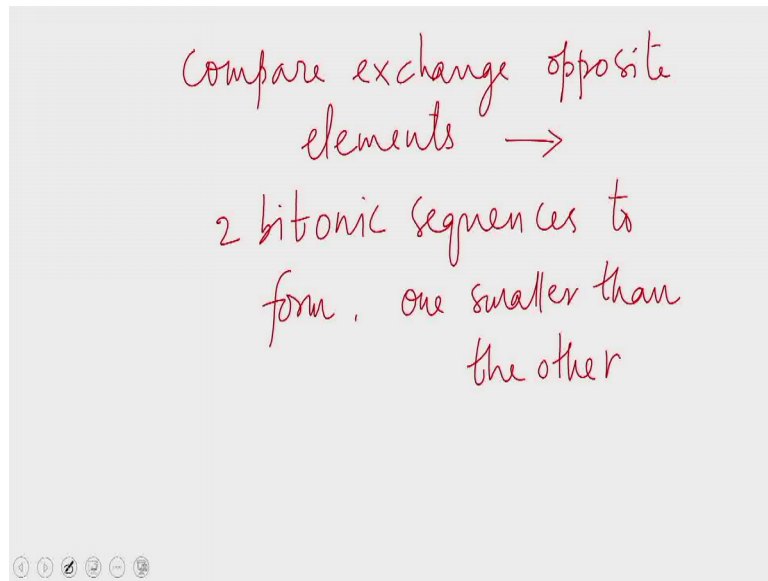 Compare exchange opposite
elements →
2 bitonic sequences to
form. one smaller than
the other